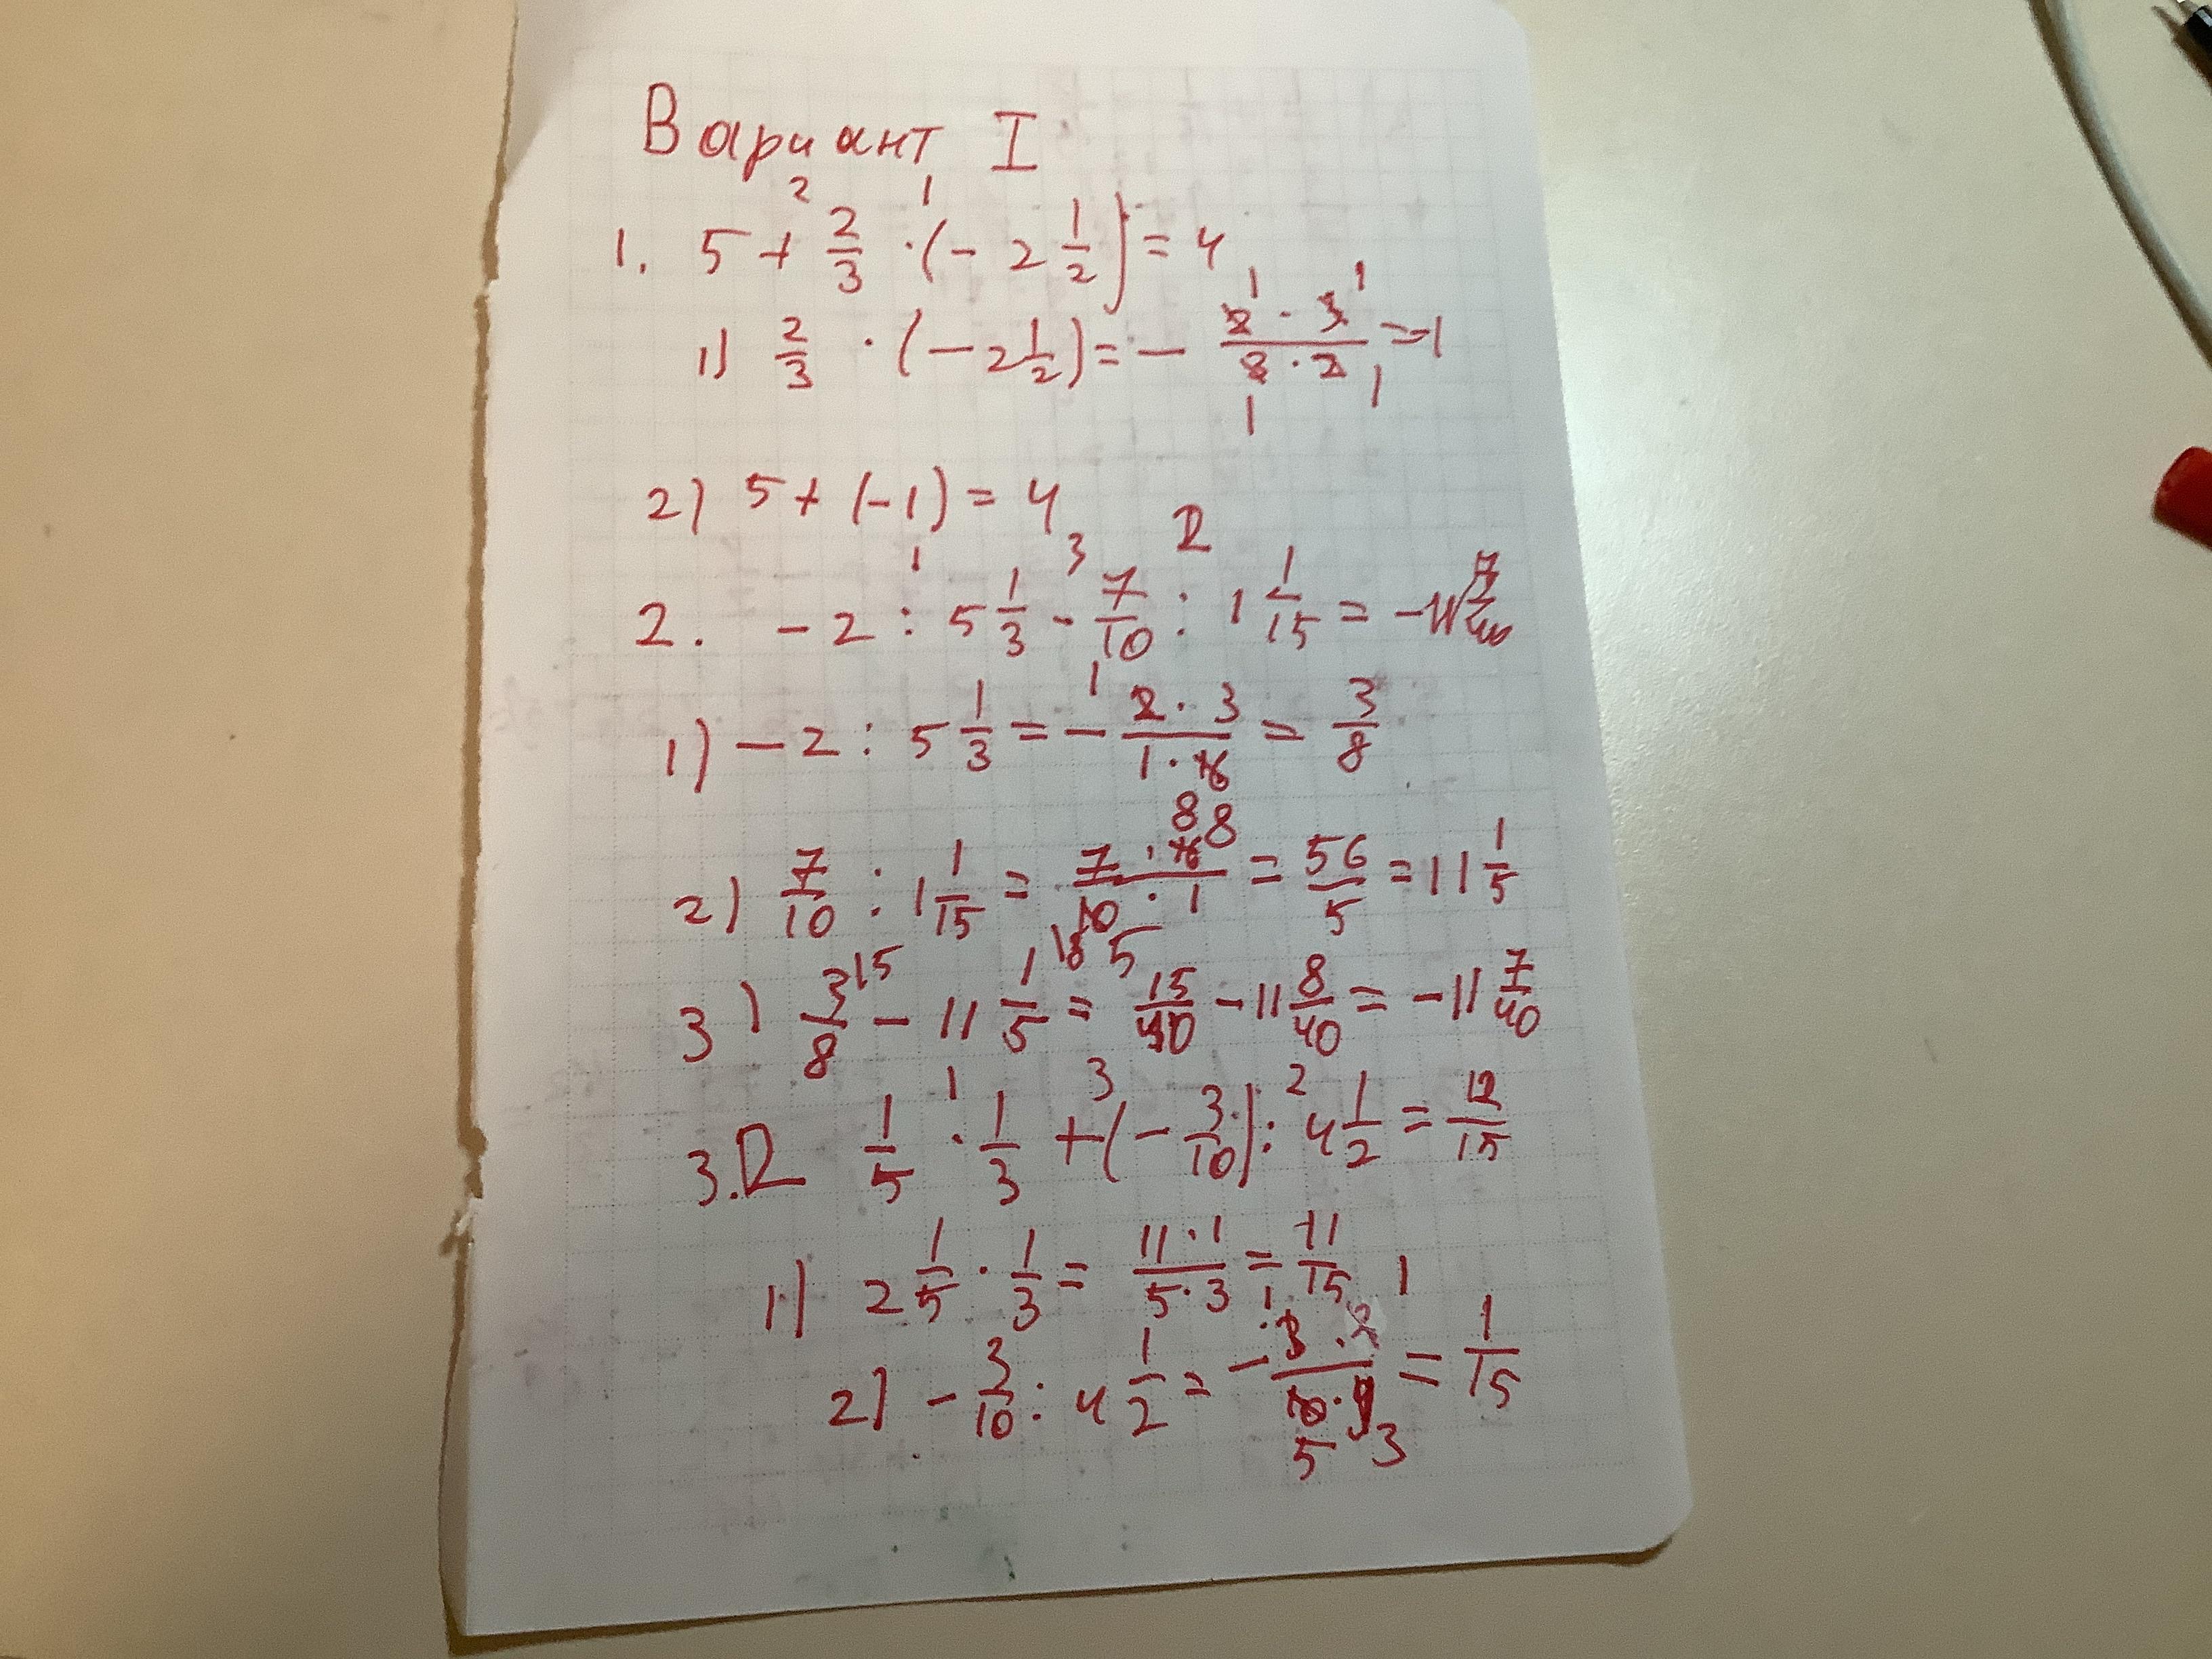 Вариант I
1. 5 + 2/3 · (- 2 1/2) = 4
1) 2/3 · (- 2 1/2) = - (2 · 3)/(3 · 2) = -1
2) 5 + (-1) = 4
2. - 2 : 5 1/3 - 7/10 : 1 1/15 = -11 7/40
1) - 2 : 5 1/3 = - (2 · 3)/(1 · 16) = 3/8
2) 7/10 : 1 1/15 = (7 · 16)/(10 · 1) = 56/5 = 11 1/5
3) 3/8 - 11 1/5 = 15/40 - 11 8/40 = -11 7/40
3. 2 1/5 · 1/3 + (- 3/10) : 4 1/2 = 12/15
1) 2 1/5 · 1/3 = (11 · 1)/(5 · 3) = 11/15
2) - 3/10 : 4 1/2 = - (3 · 2)/(10 · 9) = 1/15